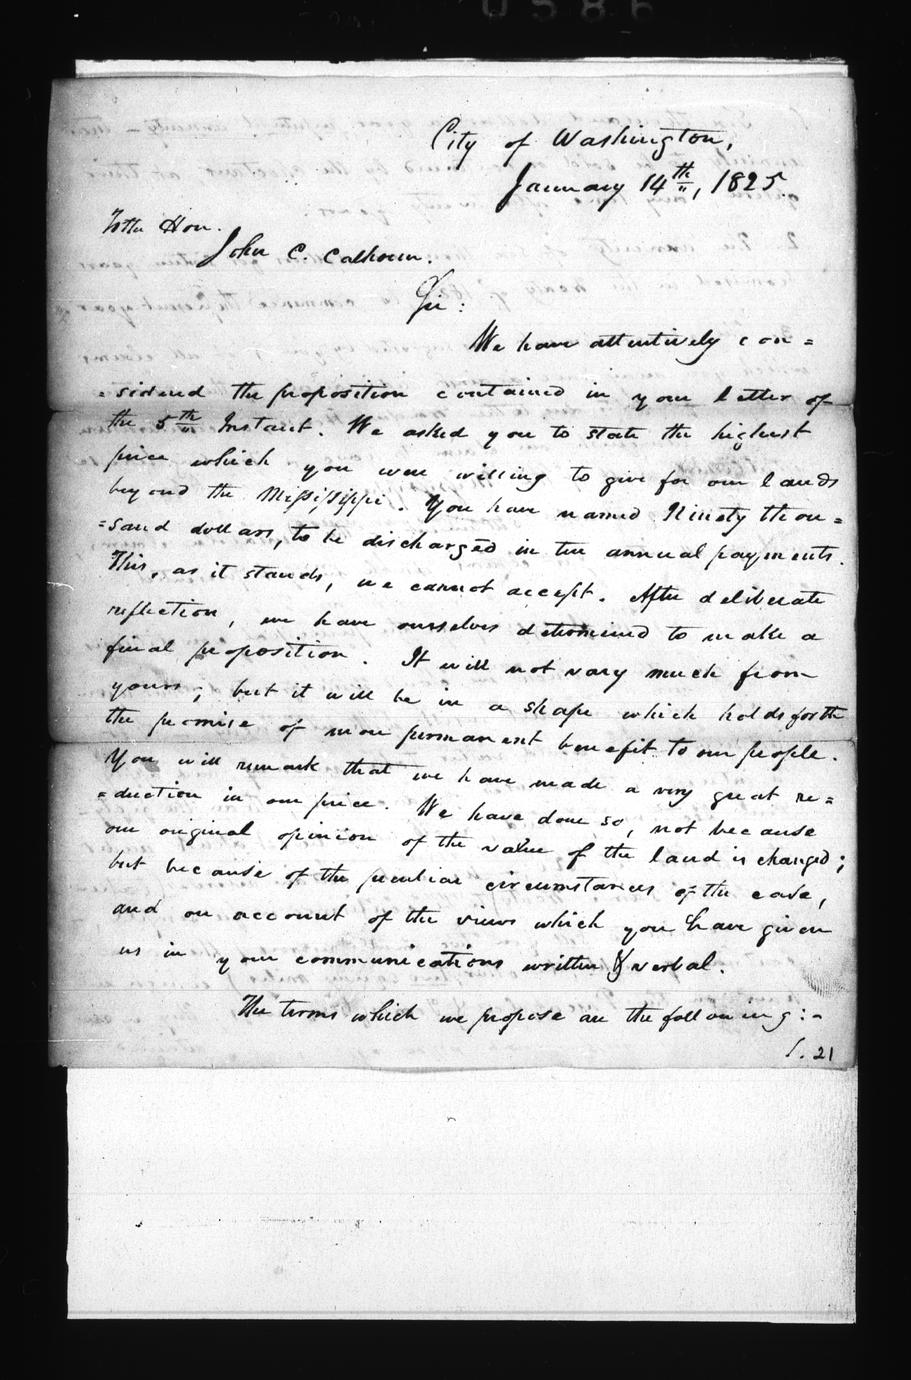 City of Washington,
January 14th, 1825
To the Hon.
John C. Calhoun.
Sir:
We have attentively con=
=sidered the proposition contained in your letter of
the 5th Instant. We asked you to state the highest
price which you were willing to give for our lands
beyond the Mississippi. You have named Ninety thou=
=sand dollars, to be discharged in ten annual payments.
This, as it stands, we cannot accept. After deliberate
reflection, we have ourselves determined to make a
final proposition. It will not vary much from
yours; but it will be in a shape which holds forth
the promise of more permanent benefit to our people.
You will remark that we have made a very great re=
=duction in our price. We have done so, not because
our original opinion of the value of the land is changed;
but because of the peculiar circumstances of the case,
and on account of the views which you have given
us in your communications written & verbal.
The terms which we propose are the following:-
1. 21